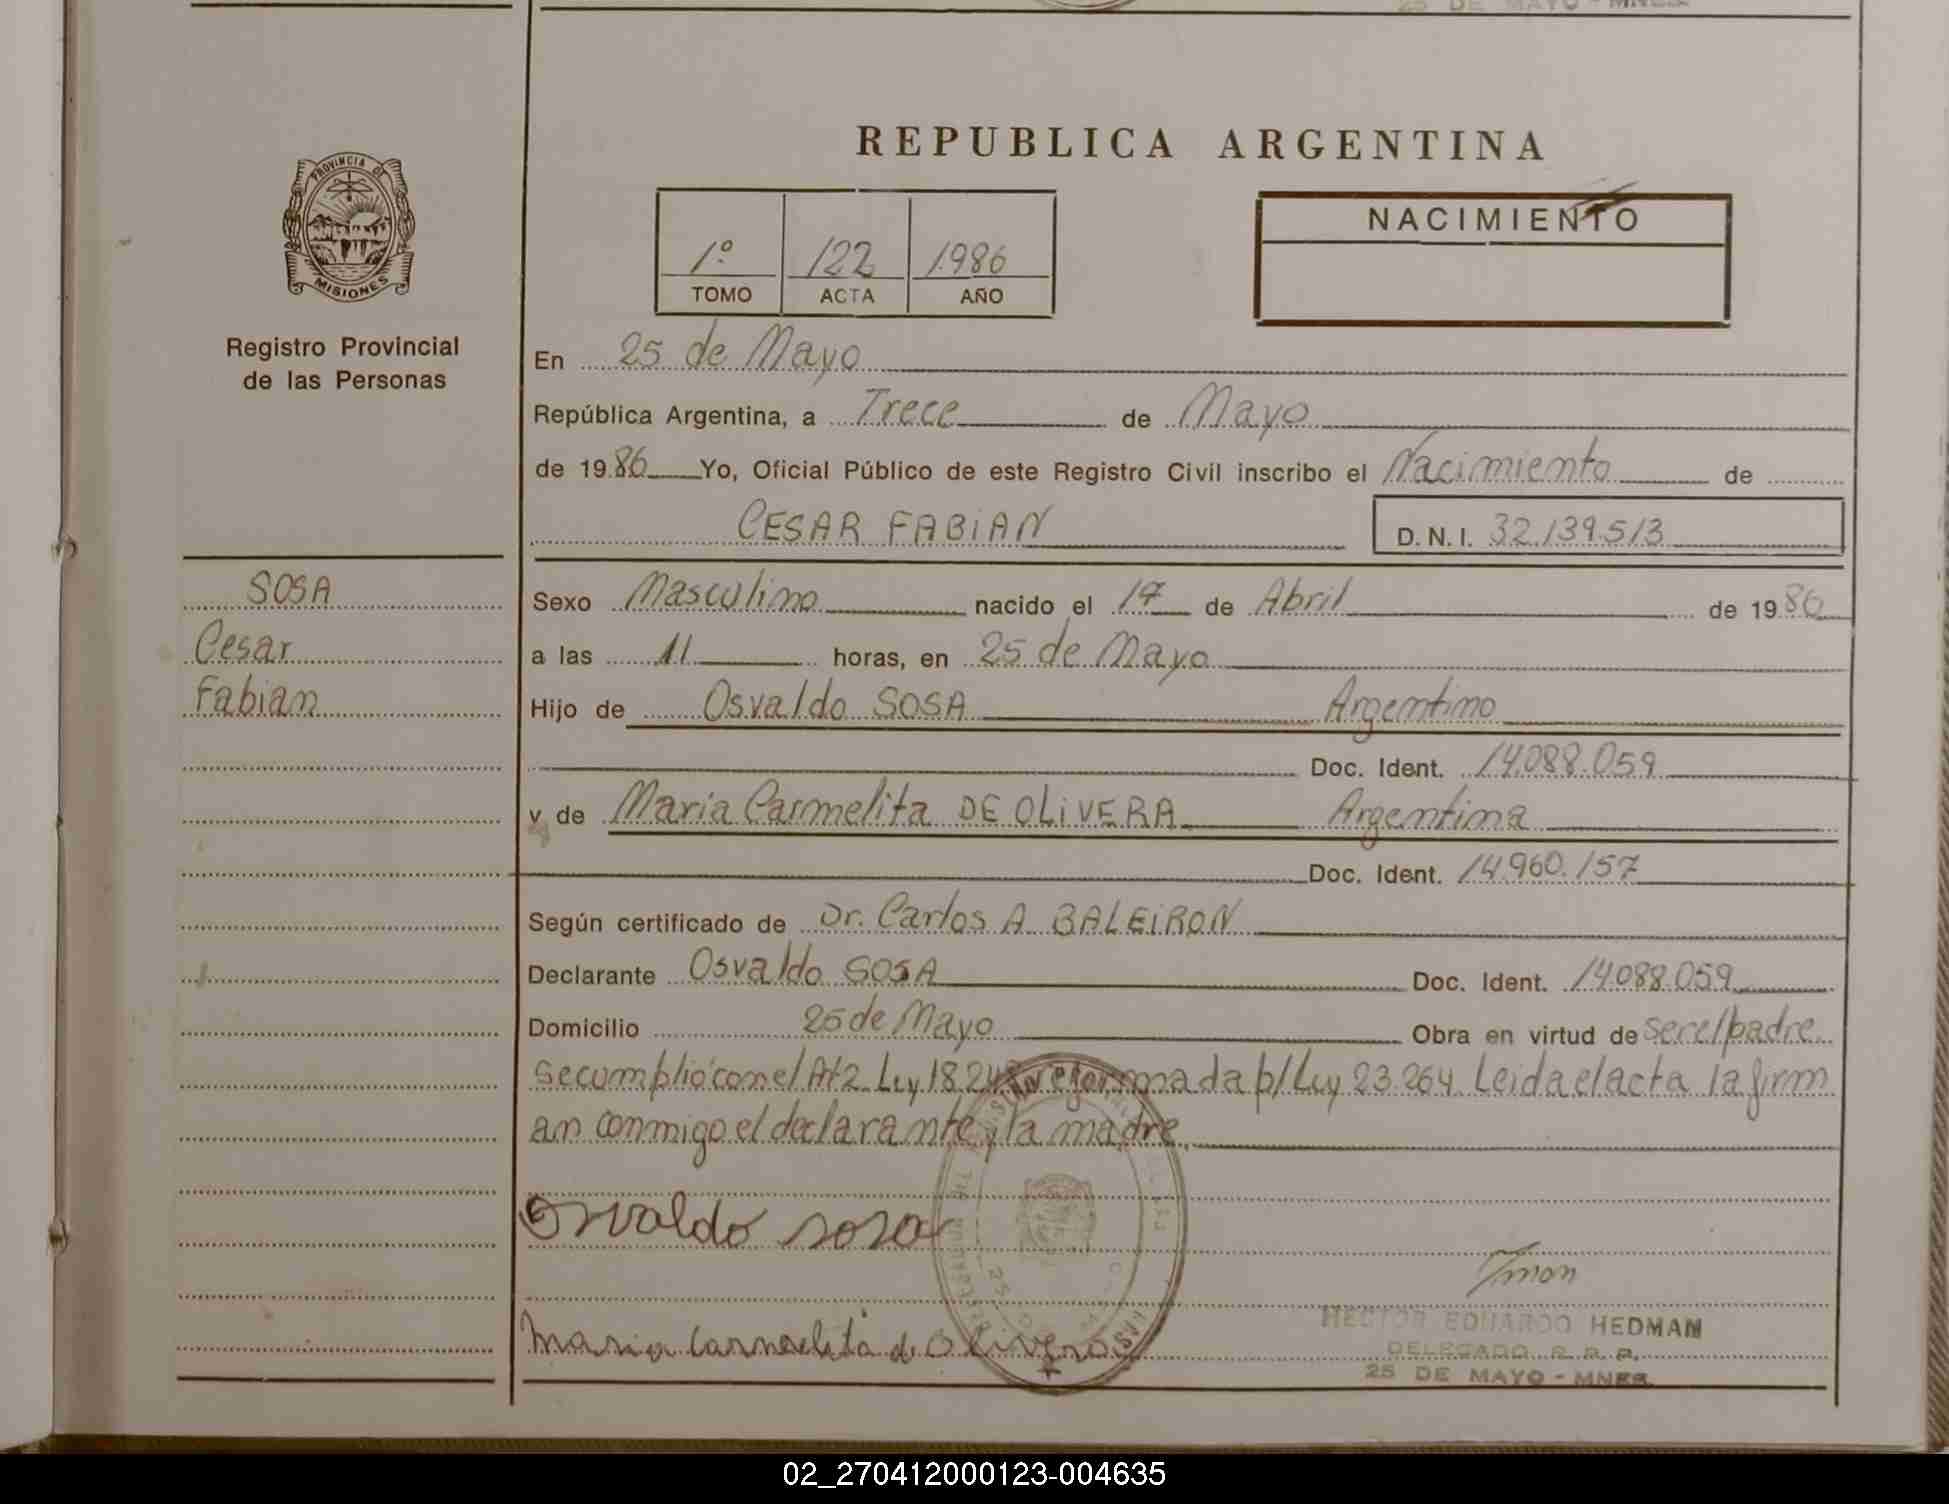 25 DE MAYO - MNES.
REPUBLICA ARGENTINA
PROVINCIA DE
MISIONES
Registro Provincial
de las Personas
1º 122 1986
TOMO ACTA AÑO
NACIMIENTO
En 25 de Mayo
República Argentina, a Trece de Mayo
de 1986 Yo, Oficial Público de este Registro Civil inscribo el Nacimiento de
CESAR FABIAN D.N.I. 32.139.513
SOSA
Cesar
Fabian
Sexo Masculino nacido el 17 de Abril de 1986
a las 11 horas, en 25 de Mayo
Hijo de Osvaldo SOSA Argentino
Doc. Ident. 14.088.059
y de Maria Carmelita DE OLIVERA Argentina
Doc. Ident. 14.960.157
Según certificado de Dr. Carlos A BALEIRON
Declarante Osvaldo SOSA Doc. Ident. 14.088.059
Domicilio 25 de Mayo Obra en virtud de ser el padre
Se cumplió con el Art 2 Ley 18.248 reformada p/Ley 23.264. Leida el acta la firm
an conmigo el declarante y la madre.
Osvaldo sosa
Maria Carmelita de Olivera
HECTOR EDUARDO HEDMAN
DELEGADO R.P.P.
25 DE MAYO - MNES.
02_270412000123-004635